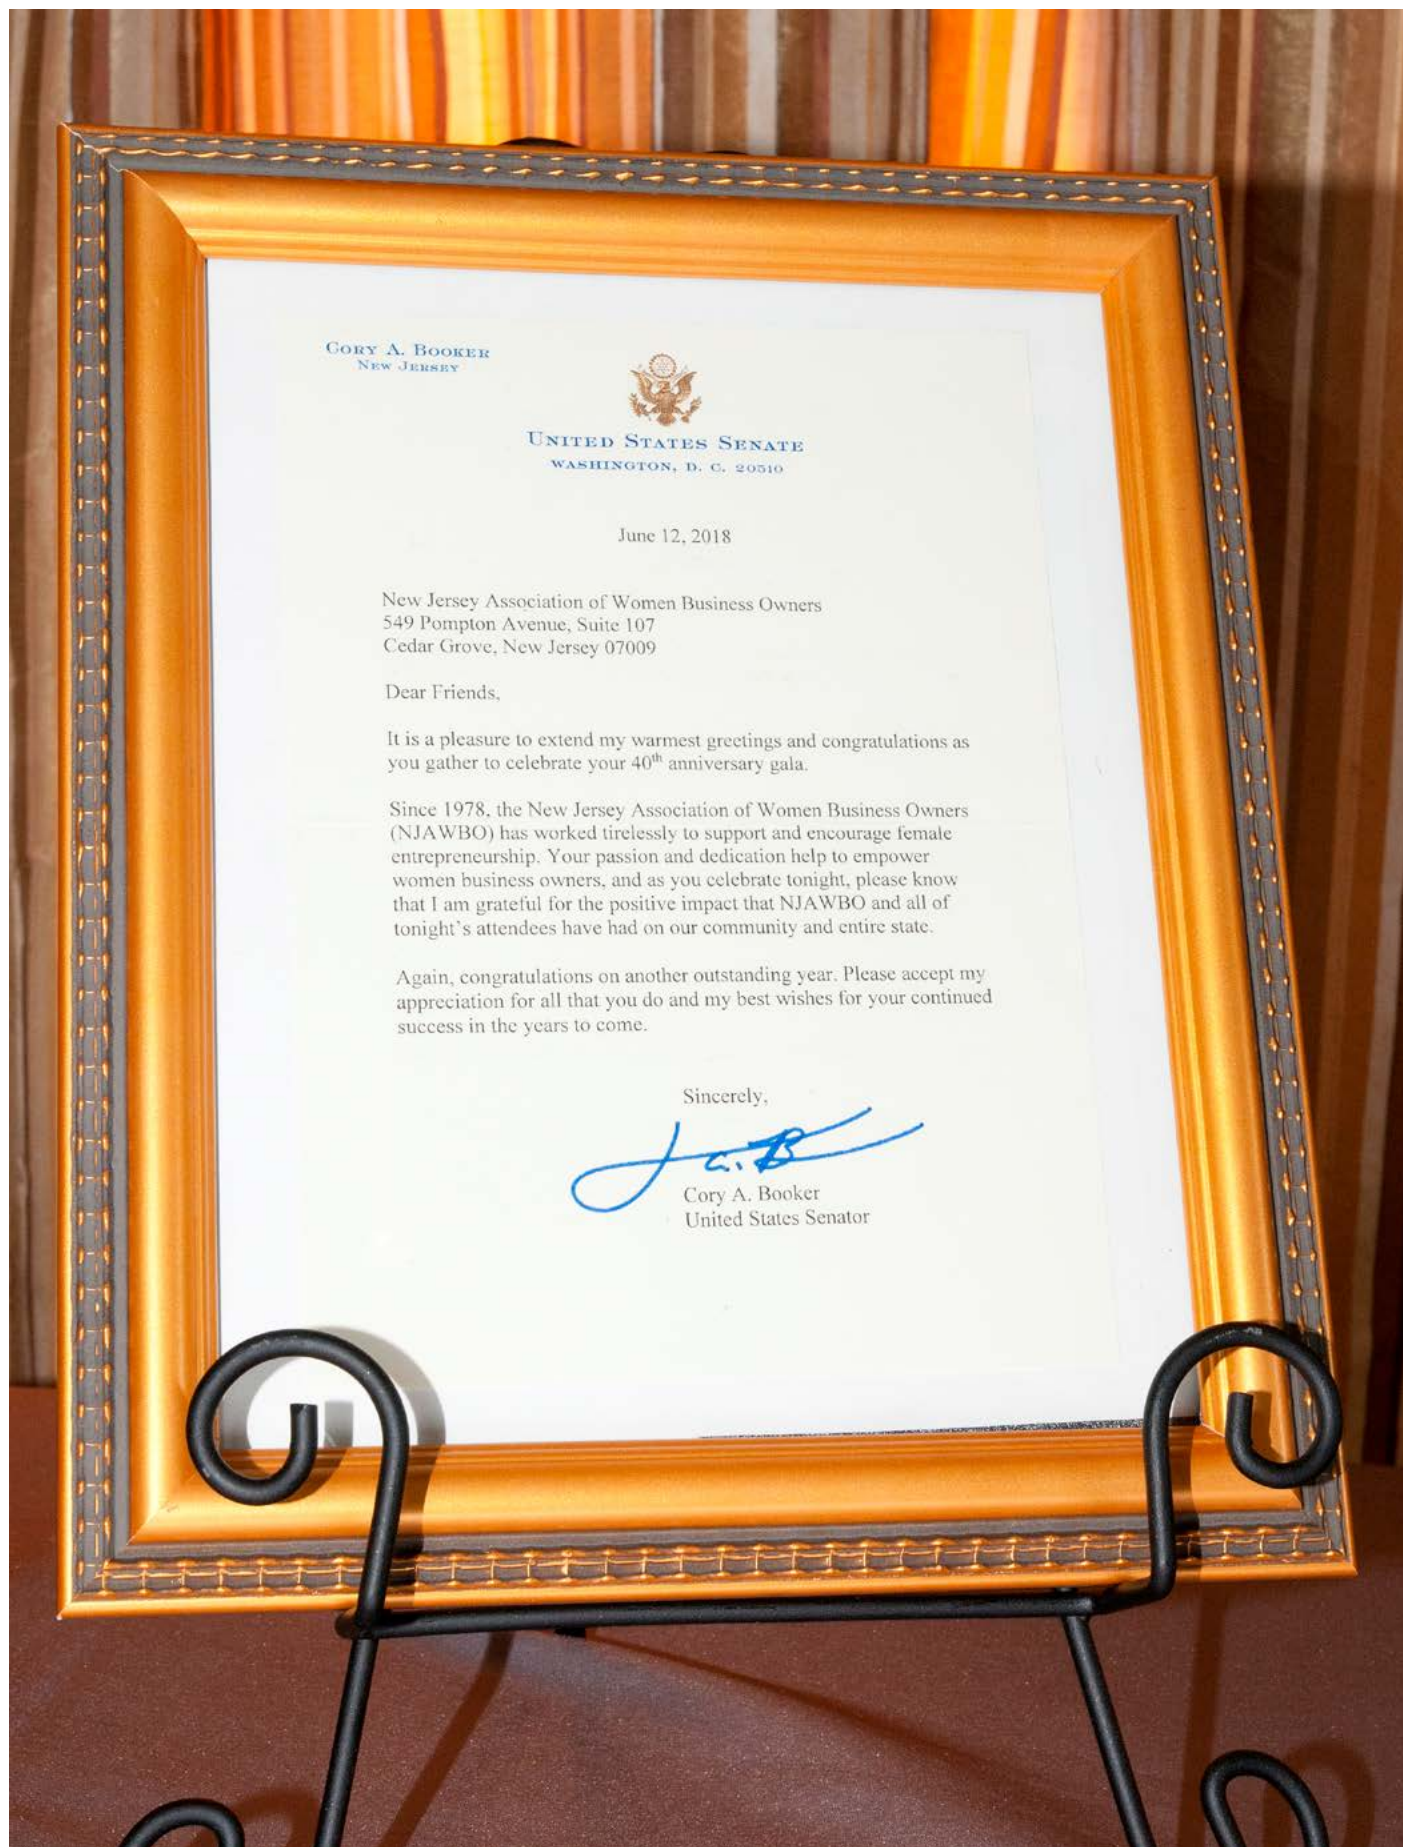 CORY A. BOOKER
NEW JERSEY
UNITED STATES SENATE
WASHINGTON, D. C. 20510
June 12, 2018
New Jersey Association of Women Business Owners
549 Pompton Avenue, Suite 107
Cedar Grove, New Jersey 07009
Dear Friends,
It is a pleasure to extend my warmest greetings and congratulations as
you gather to celebrate your 40th anniversary gala.
Since 1978, the New Jersey Association of Women Business Owners
(NJAWBO) has worked tirelessly to support and encourage female
entrepreneurship. Your passion and dedication help to empower
women business owners, and as you celebrate tonight, please know
that I am grateful for the positive impact that NJAWBO and all of
tonight's attendees have had on our community and entire state.
Again, congratulations on another outstanding year. Please accept my
appreciation for all that you do and my best wishes for your continued
success in the years to come.
Sincerely,
Cory A. Booker
United States Senator